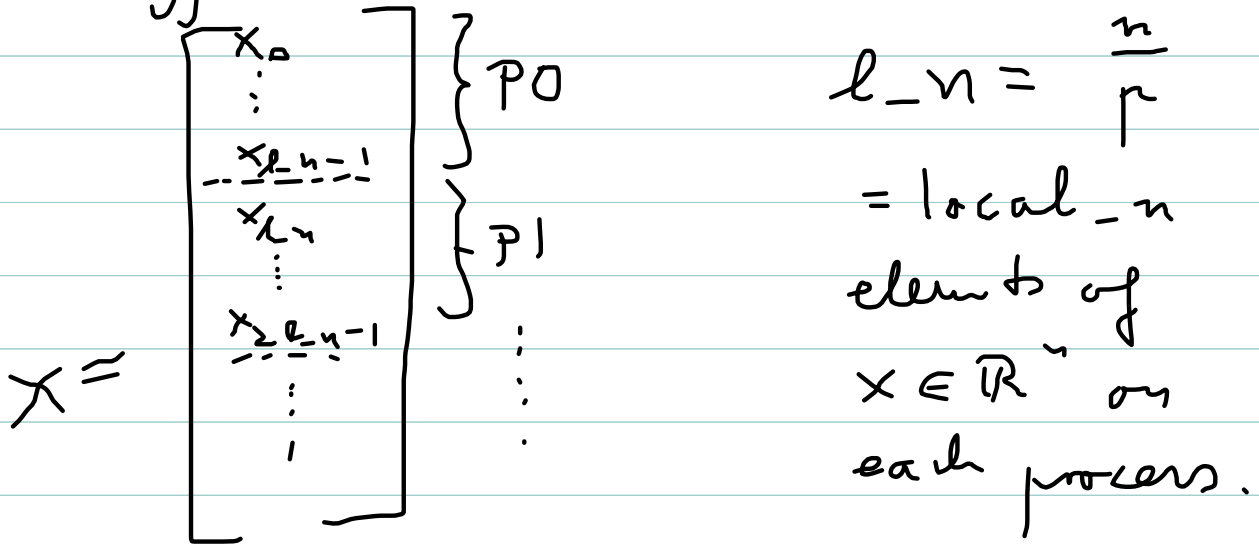 x_0
⋮
x_{l_n-1}
x_{l_n}
⋮
x_{2l_n-1}
⋮
x =
} P0
} P1
⋮
l_n = n/p
= local_n
elements of
x ∈ ℝ^n on
each process.